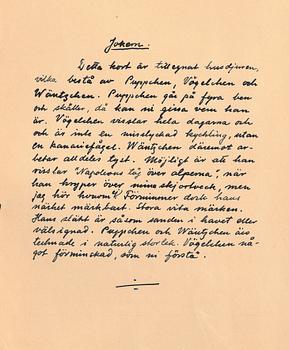 Jokern.
Detta kort är tillegnat husdjuren,
vilka bestå av Puppchen, Vögelchen och
Wäntzchen. Puppchen går på fyra ben
och skäller, då kan ni gissa vem han
är. Vögelchen visslar hela dagarna och
och är inte en misslyckad kyckling, utan
en kanariefågel. Wäntzchen däremot ar-
betar alldeles tyst. Möjligt är att han
visslar "Napoleons tåg över alperna", när
han kryper över mina skjortveck, men
jag hör honom ej. Förnimmer dock hans
närhet märkbart. Stora vita märken.
Hans släkt är såsom sanden i havet eller
välsignad. Puppchen och Wäntzchen äro
tecknade i naturlig storlek. Vögelchen nå-
got förminskad, som ni förstå.